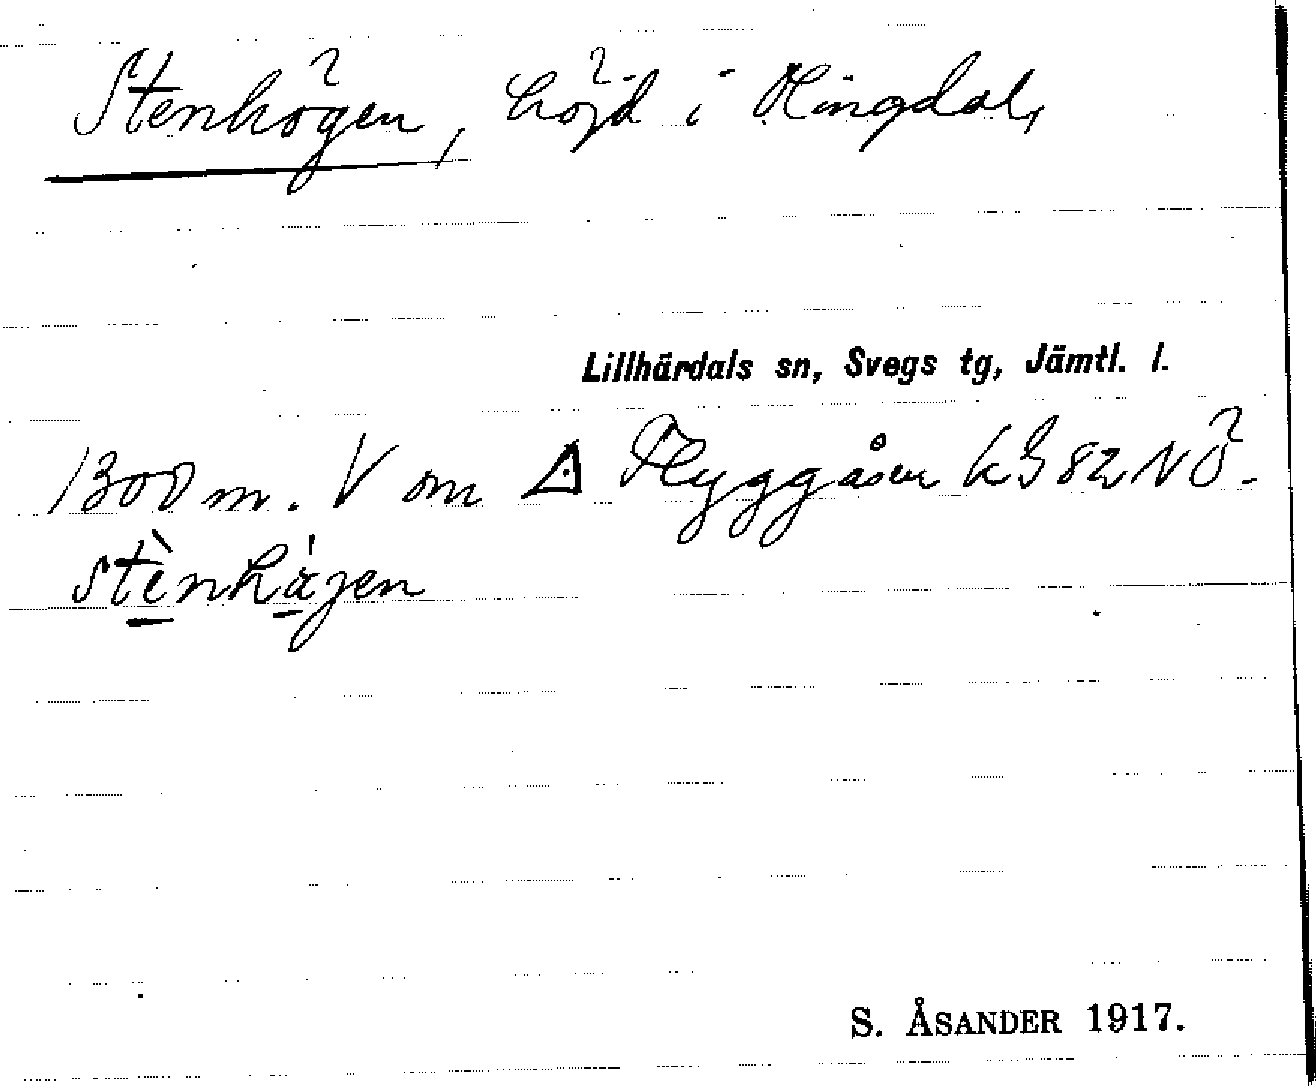 Stenhögen, höjd i Kingdal,
Lillhärdals sn, Svegs tg, Jämtl. l.
1300 m. V om △ Flyggåsen k 982 NÖ.
stènhä́gen
S. ÅSANDER 1917.